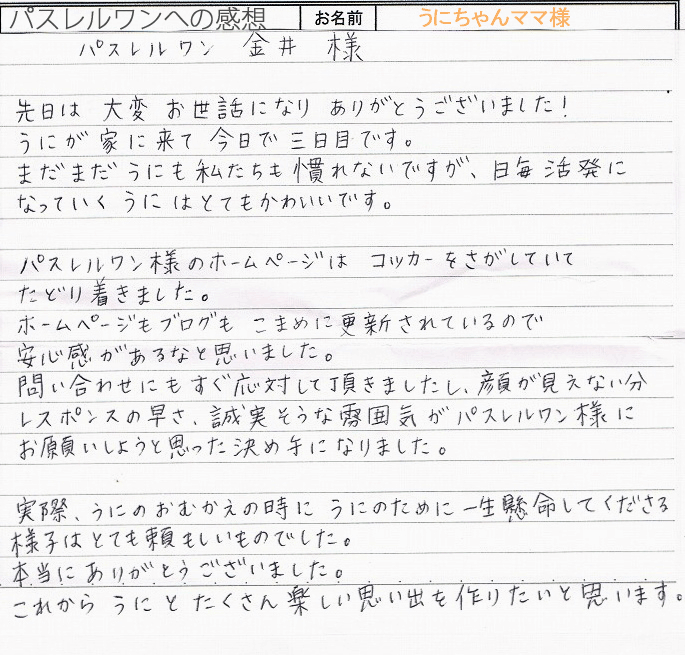 パスレルワンへの感想 お名前 うにちゃんママ様
パスレルワン 金井 様
先日は 大変 お世話になり ありがとうございました!
うにが 家に来て 今日で 三日目です。
まだまだ うにも 私たちも 慣れないですが、日毎 活発に
なっていく うには とてもかわいいです。
パスレルワン様のホームページは コッカーをさがしていて
たどり着きました。
ホームページもブログも こまめに更新されているので
安心感があるなと思いました。
問い合わせにもすぐ応対して頂きましたし、顔が見えない分
レスポンスの早さ、誠実そうな雰囲気がパスレルワン様に
お願いしようと思った決め手になりました。
実際、うにのおむかえの時に うにのために一生懸命してくださる
様子はとても頼もしいものでした。
本当にありがとうございました。
これから うにと たくさん 楽しい思い出を作りたいと思います。